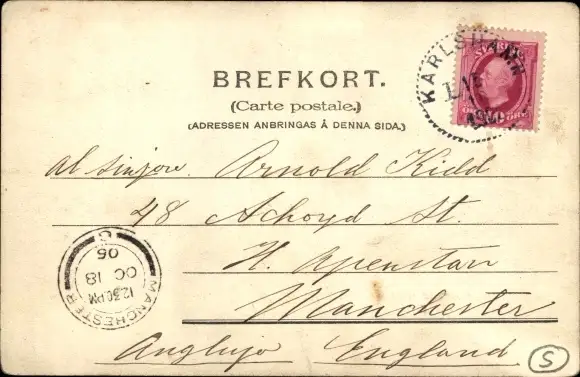 BREFKORT.
(Carte postale.)
(ADRESSEN ANBRINGAS Å DENNA SIDA.)
KARLSHAMN
al sinjoro. Arnold Kidd
48 Ackoyd St.
H. Openstau
Manchester
Anglujo England
MANCHESTER
12.30PM
OC 18
05
S